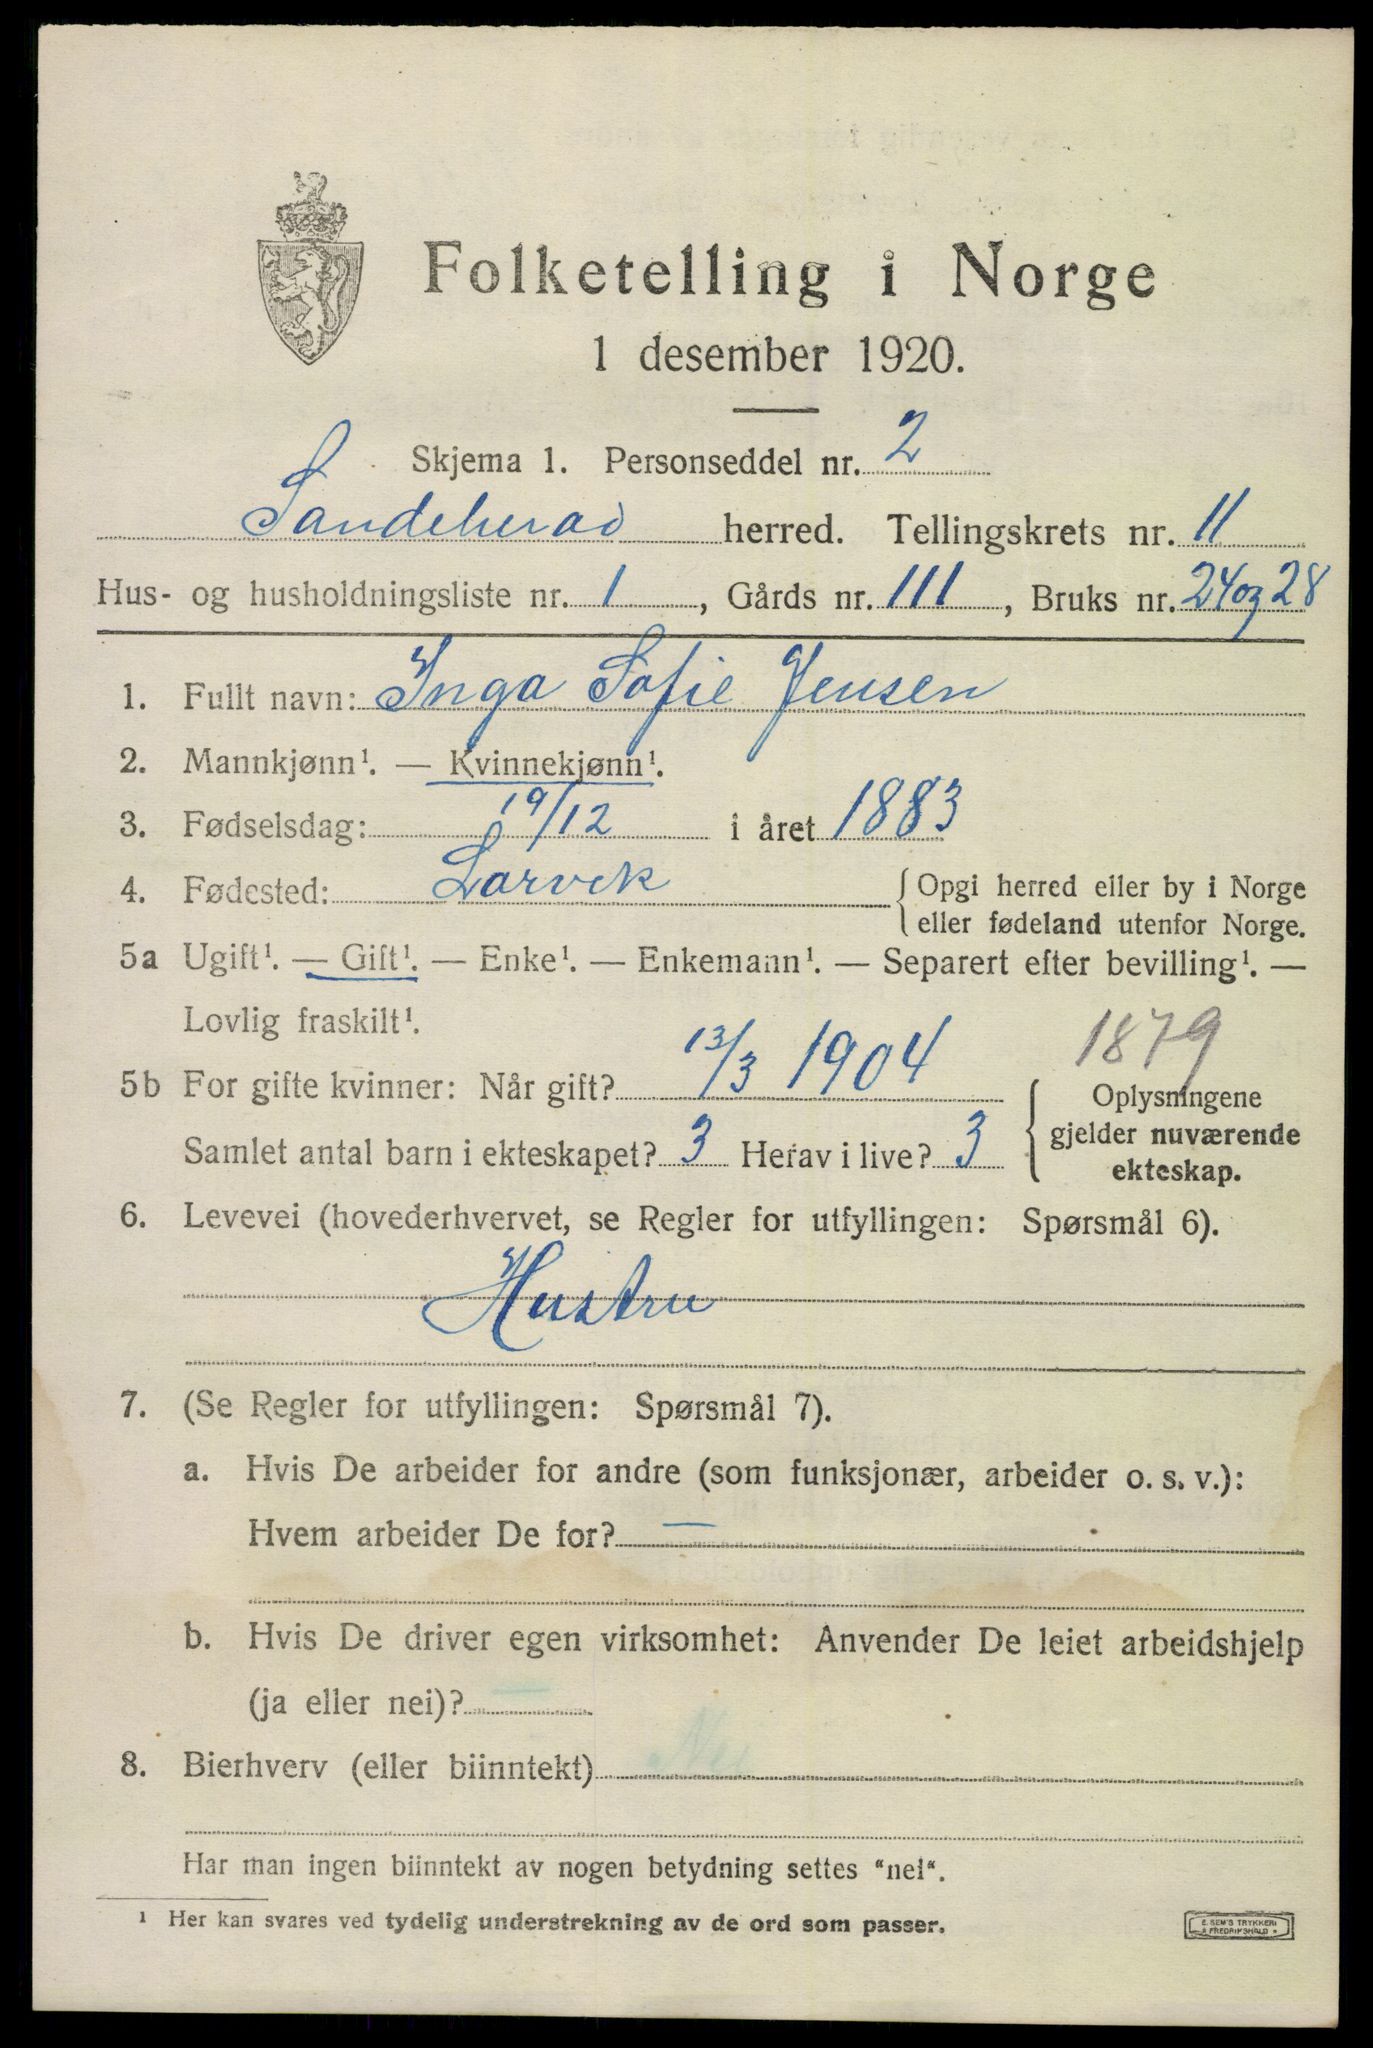 Folketelling i Norge
1 desember 1920.
Skjema 1. Personseddel nr. 2
Sandeherad herred. Tellingskrets nr. 11
Hus- og husholdningsliste nr. 1, Gårds nr. 111, Bruks nr. 24 og 28
1. Fullt navn: Inga Sofie Jensen
2. Mannkjønn¹. — Kvinnekjønn¹.
3. Fødselsdag: 19/12 i året 1883
4. Fødested: Larvik { Opgi herred eller by i Norge
eller fødeland utenfor Norge.
5a Ugift¹. — Gift¹. — Enke¹. — Enkemann¹. — Separert efter bevilling¹. —
Lovlig fraskilt¹.
1879
5b For gifte kvinner: Når gift? 13/3 1904
Samlet antal barn i ekteskapet? 3 Herav i live? 3
{ Oplysningene
gjelder nuværende
ekteskap.
6. Levevei (hovederhvervet, se Regler for utfyllingen: Spørsmål 6).
Hustru
7. (Se Regler for utfyllingen: Spørsmål 7).
a. Hvis De arbeider for andre (som funksjonær, arbeider o. s. v.):
Hvem arbeider De for? —
b. Hvis De driver egen virksomhet: Anvender De leiet arbeidshjelp
(ja eller nei)? —
8. Bierhverv (eller biinntekt) Nei
Har man ingen biinntekt av nogen betydning settes "nei".
¹ Her kan svares ved tydelig understrekning av de ord som passer.
E. SEM'S TRYKKERI
FREDRIKSHALD